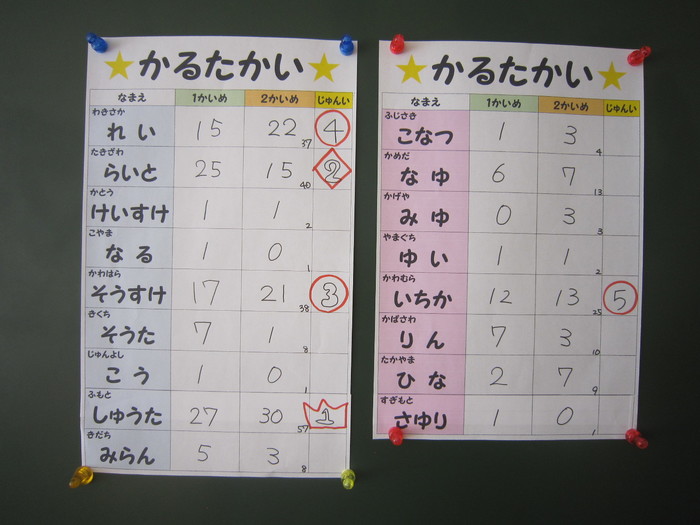 ★かるたかい★
なまえ 1かいめ 2かいめ じゅんい
わきさか
れい 15 22 37 4
たきざわ
らいと 25 15 40 2
かとう
けいすけ 1 1 2
こやま
なる 1 0 1
かわはら
そうすけ 17 21 38 3
きくち
そうた 7 1 8
じゅんよし
こう 1 0 1
ふもと
しゅうた 27 30 57 1
きだち
みらん 5 3 8
★かるたかい★
なまえ 1かいめ 2かいめ じゅんい
ふじさき
こなつ 1 3 4
かめだ
なゆ 6 7 13
かげや
みゆ 0 3 3
やまぐち
ゆい 1 1 2
かわむら
いちか 12 13 25 5
かばさわ
りん 7 3 10
たかやま
ひな 2 7 9
すぎもと
さゆり 1 0 1